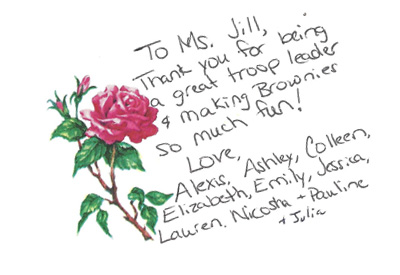 To Ms. Jill,
Thank you for being
a great troop leader
& making Brownies
so much fun!
Love,
Alexis, Ashley, Colleen,
Elizabeth, Emily, Jessica,
Lauren, Nicosha + Pauline
+ Julia